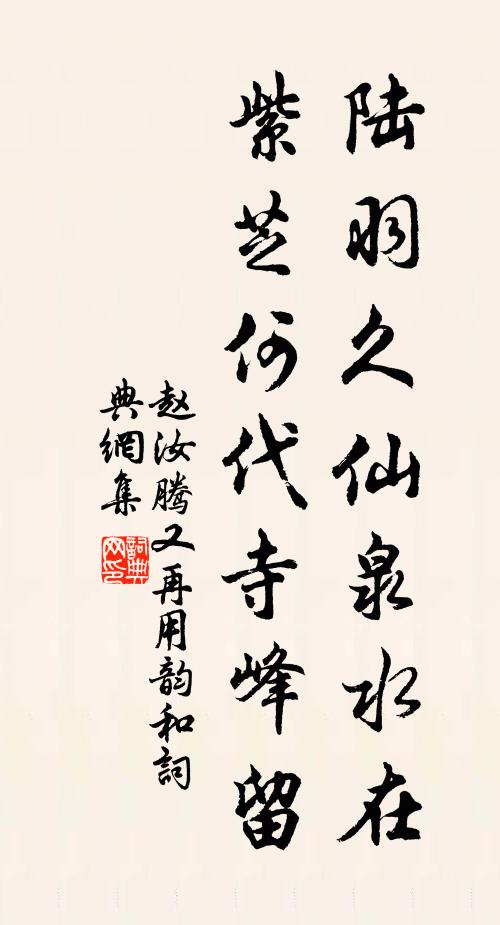 陆羽久仙泉水在
紫芝何代寺峰留
赵汝腾又再用韵和詞
典網集
詞典网印